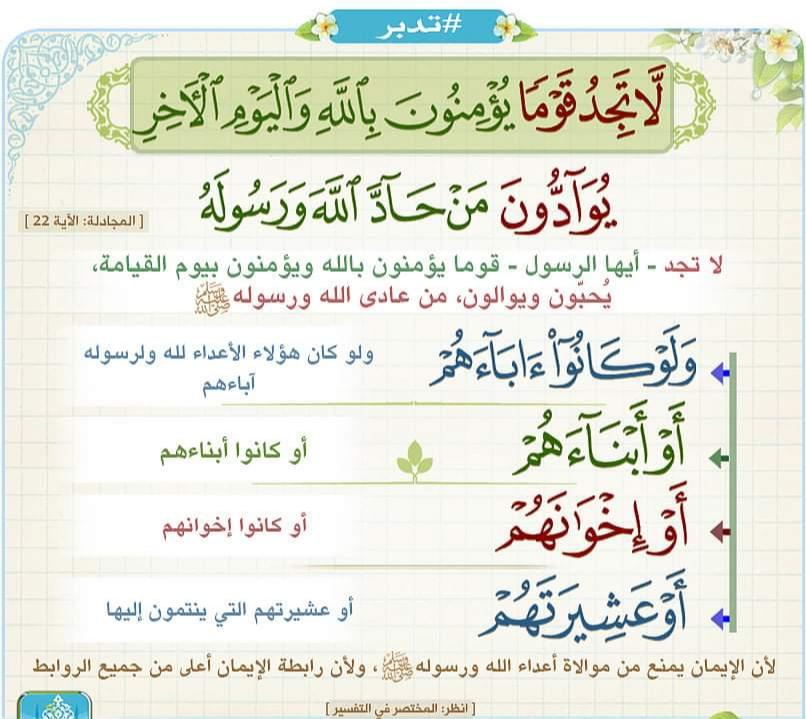 #تدبر
لَّا تَجِدُ قَوْمًا يُؤْمِنُونَ بِٱللَّهِ وَٱلْيَوْمِ ٱلْأَخِرِ
يُوَآدُّونَ مَنْ حَآدَّ ٱللَّهَ وَرَسُولَهُ
[ المجادلة: الآية 22 ]
لا تجد - أيها الرسول - قوما يؤمنون بالله ويؤمنون بيوم القيامة،
يُحبّون ويوالون، من عادى الله ورسوله ﷺ
وَلَوْ كَانُوٓا۟ ءَابَآءَهُمْ
ولو كان هؤلاء الأعداء لله ولرسوله
آباءهم
أَوْ أَبْنَآءَهُمْ
أو كانوا أبناءهم
أَوْ إِخْوَٰنَهُمْ
أو كانوا إخوانهم
أَوْ عَشِيرَتَهُمْ
أو عشيرتهم التي ينتمون إليها
لأن الإيمان يمنع من موالاة أعداء الله ورسوله ﷺ ، ولأن رابطة الإيمان أعلى من جميع الروابط
[ انظر: المختصر في التفسير ]